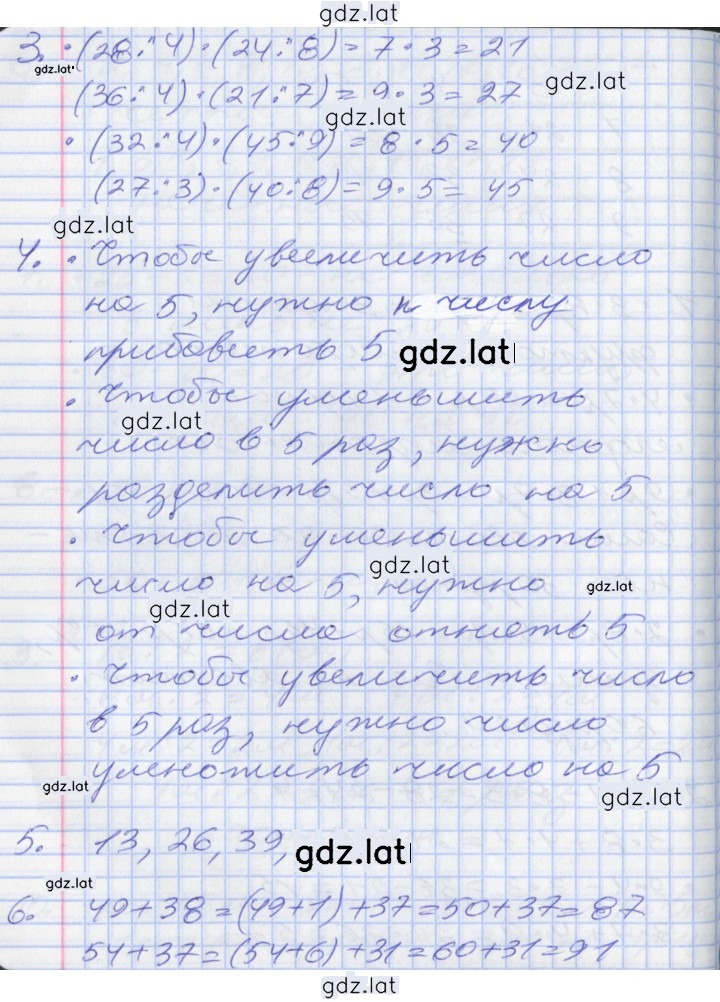 gdz.lat
3. • (28:4)•(24:8)=7•3=21
gdz.lat
(36:4)•(21:7)=9•3=27
gdz.lat
gdz.lat
• (32:4)•(45:9)=8•5=40
(27:3)•(40:8)=9•5=45
gdz.lat
4. • Чтобы увеличить число
на 5, нужно к числу
прибавить 5
gdz.lat
• Чтобы уменьшить
gdz.lat
число в 5 раз, нужно
разделить число на 5
• Чтобы уменьшить
gdz.lat
число на 5, нужно
gdz.lat
gdz.lat
от числа отнять 5
• Чтобы увеличить число
в 5 раз, нужно число
умножить число на 5
gdz.lat
gdz.lat
5. 13, 26, 39,
gdz.lat
gdz.lat
6. 49+38=(49+1)+37=50+37=87
54+37=(54+6)+31=60+31=91
gdz.lat